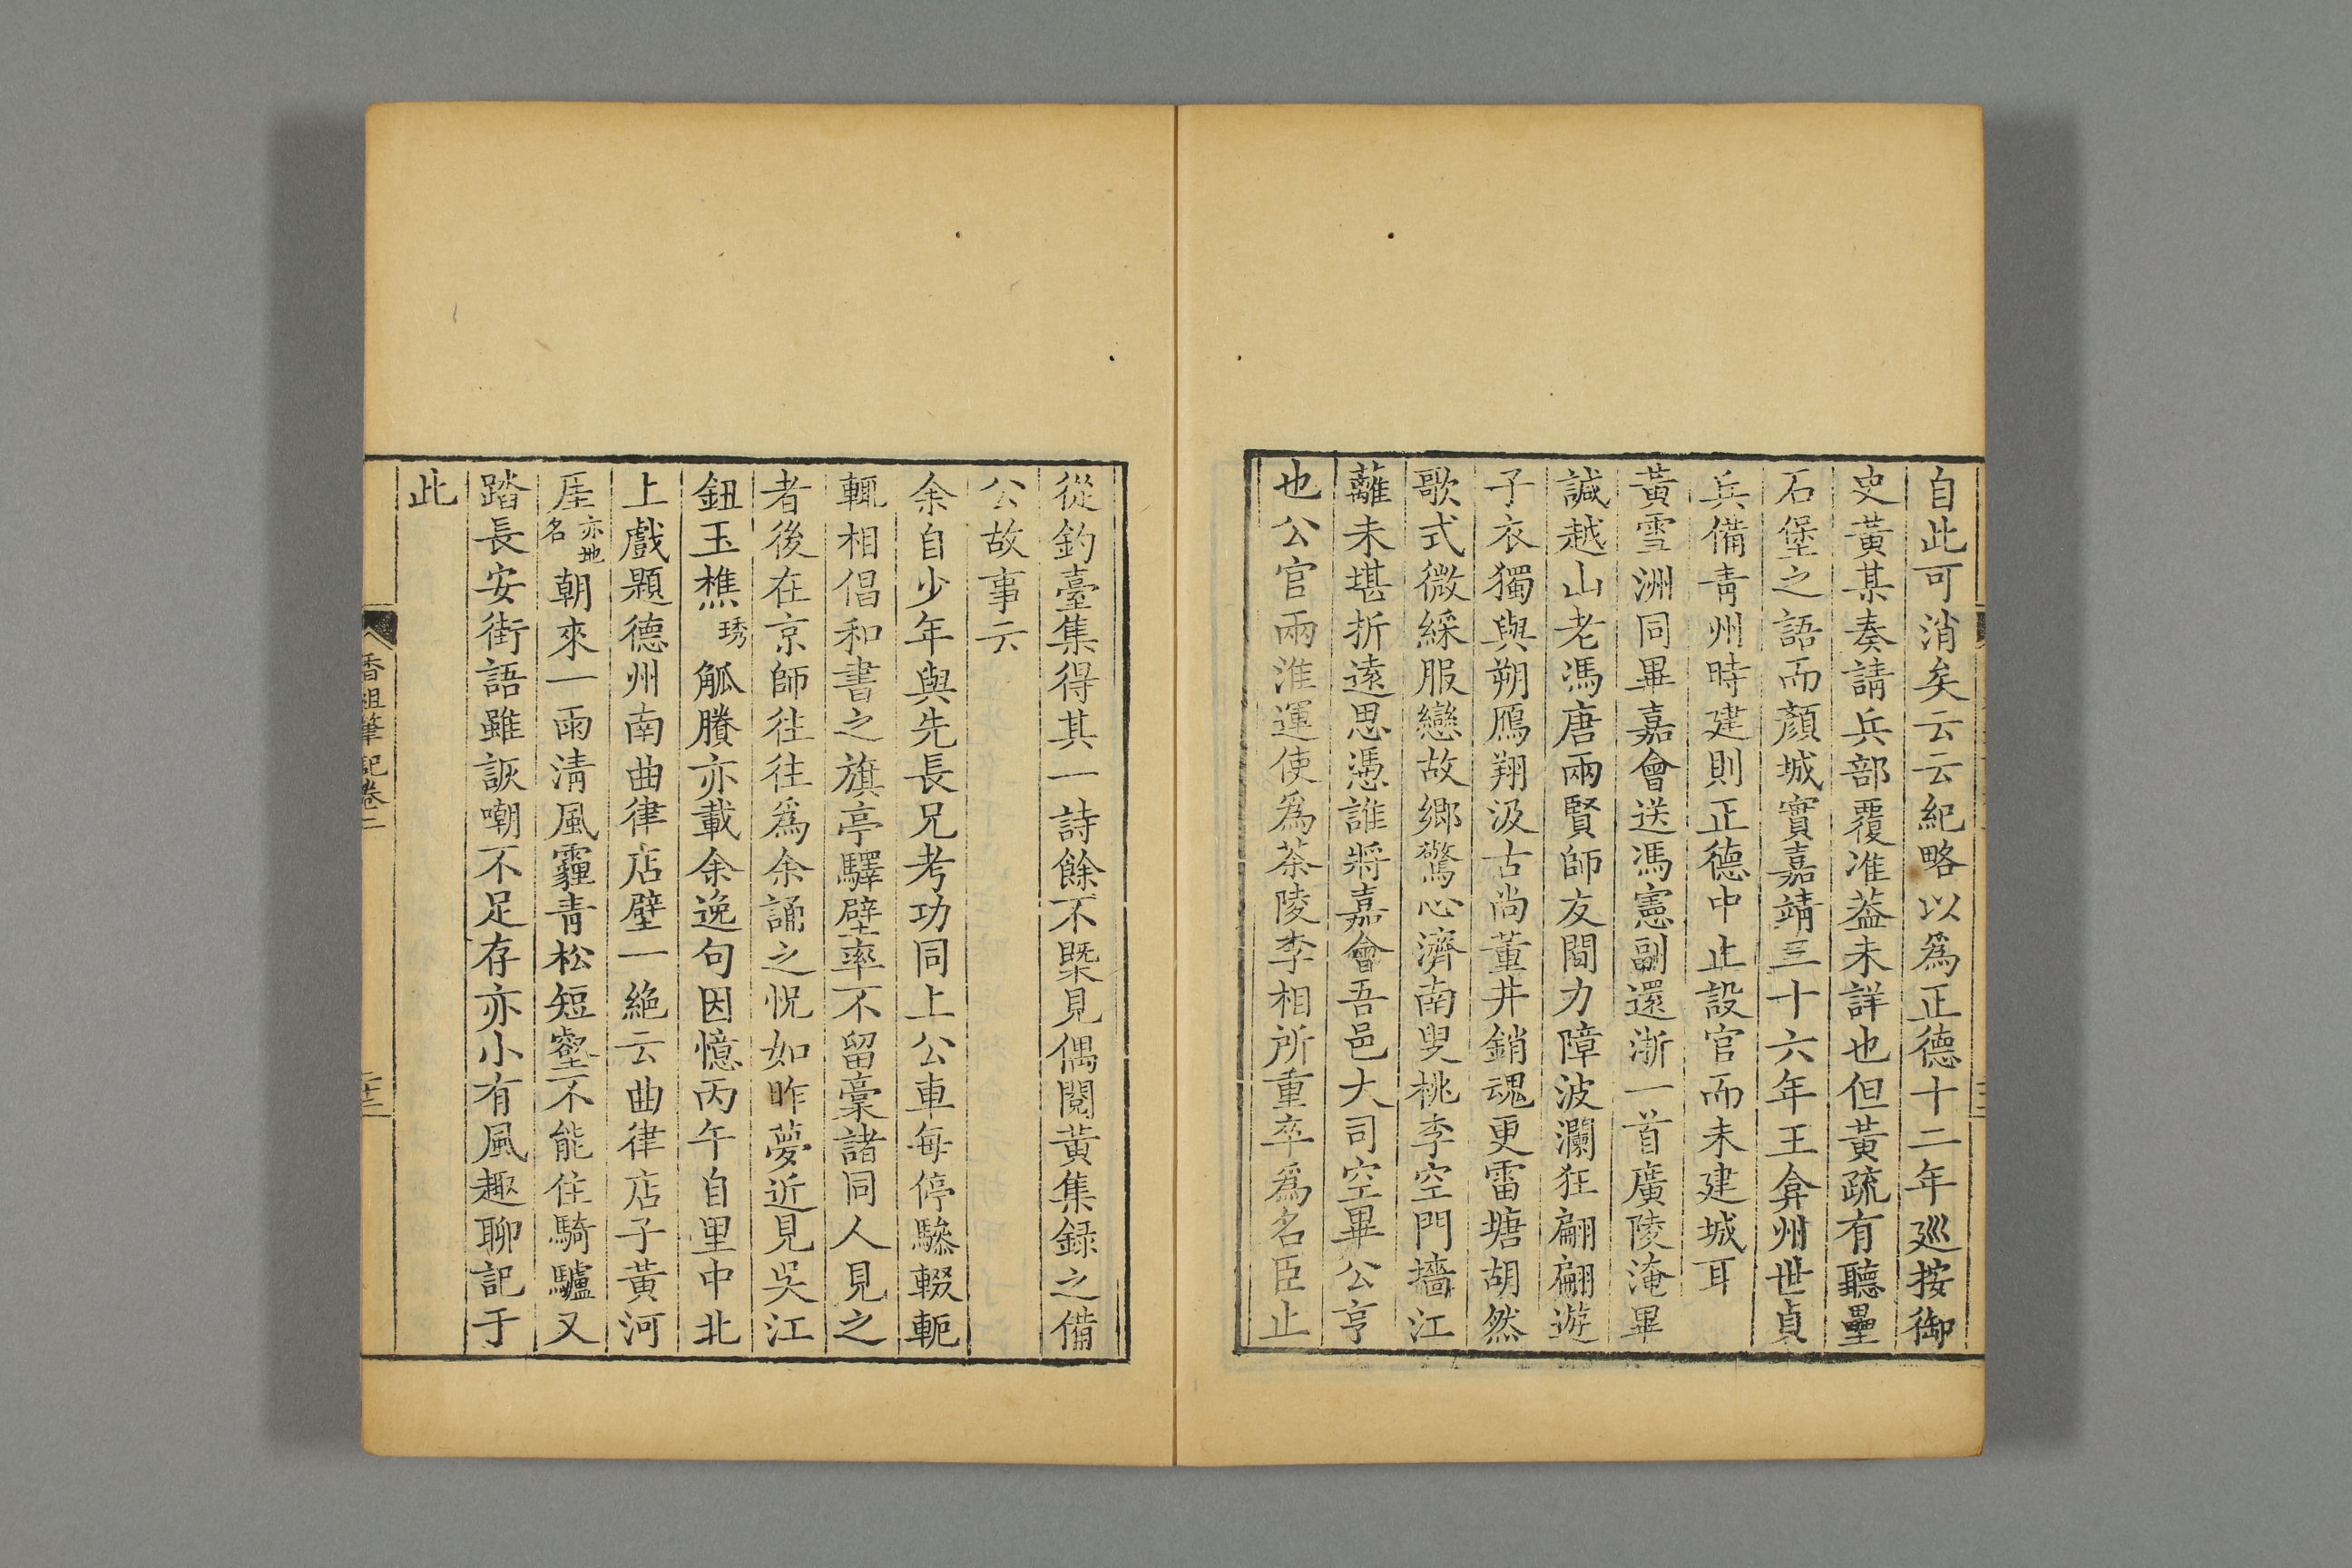 自此可消矣云云紀略以爲正德十二年廵按御
史黃某奏請兵部覆准葢未詳也但黃疏有聽壘
石堡之語而顏城實嘉靖三十六年王弇州世貞
兵備青州時建則正德中止設官而未建城耳
黃雪洲同畢嘉會送馮憲副還浙一首廣陵淹畢
諴越山老馮唐兩賢師友間力障波瀾狂翩翩遊
子衣獨與朔鴈翔汲古尚董井銷魂更雷塘胡然
歌式微綵服戀故鄉驚心濟南叟桃李空門牆江
蘺未堪折遠思憑誰將嘉會吾邑大司空畢公亨
也公官兩淮運使爲茶陵李相所重卒爲名臣止
從釣臺集得其一詩餘不槩見偶閱黃集録之備
公故事云
余自少年與先長兄考功同上公車每停驂輟軛
輒相倡和書之旗亭驛壁率不留稾諸同人見之
者後在京師徃徃爲余誦之怳如昨夢近見吳江
鈕玉樵琇觚賸亦載余逸句因憶丙午自里中北
上戲題德州南曲律店壁一絕云曲律店子黃河
厓亦地名朝來一雨清風霾青松短壑不能住騎驢又
踏長安街語雖詼嘲不足存亦小有風趣聊記于
此
香祖筆記卷二